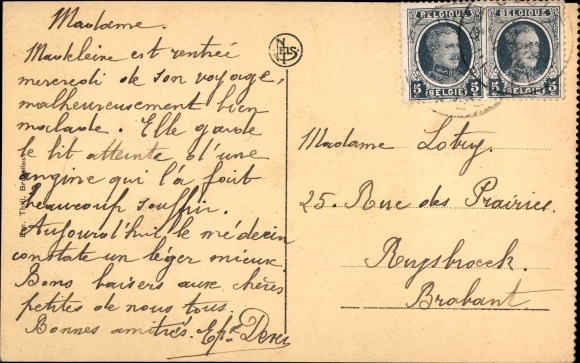 Madame.
Madeleine est rentrée
mercredi de son voyage,
malheureusement bien
malade. Elle garde
le lit atteinte d'une
angine qui l'a fait
beaucoup souffrir.
Aujourd'hui le médecin
constate un léger mieux
Bons baisers aux chères
petites de nous tous.
Bonnes amitiés.
NELS
BELGIQUE
5 BELGIË 5
BELGIQUE
5 BELGIË 5
Madame Lotry.
25. Rue des Prairies.
Ruysbroeck.
Brabant.